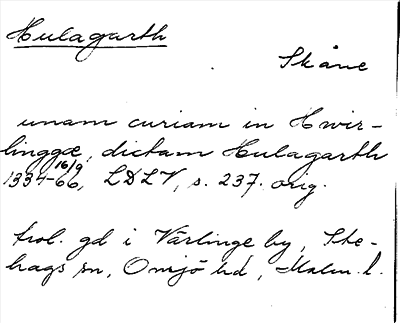 Hulagarth
Skåne
unam curiam in Hwir-
linggæ, dictam Hulagarth
1334-66 16/9, LDLV, s. 237. orig.
trol. gd i Värlinge by, Ste-
hags sn, Onsjö hd, Malm. l.